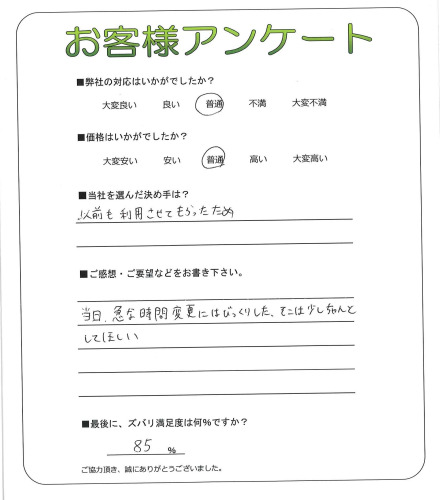 お客様アンケート
■弊社の対応はいかがでしたか?
大変良い 良い 普通 不満 大変不満
■価格はいかがでしたか?
大変安い 安い 普通 高い 大変高い
■当社を選んだ決め手は?
以前も利用させてもらったため
■ご感想・ご要望などをお書き下さい。
当日、急な時間変更にはびっくりした、そこは少しちゃんと
してほしい
■最後に、ズバリ満足度は何%ですか?
85 %
ご協力頂き、誠にありがとうございました。